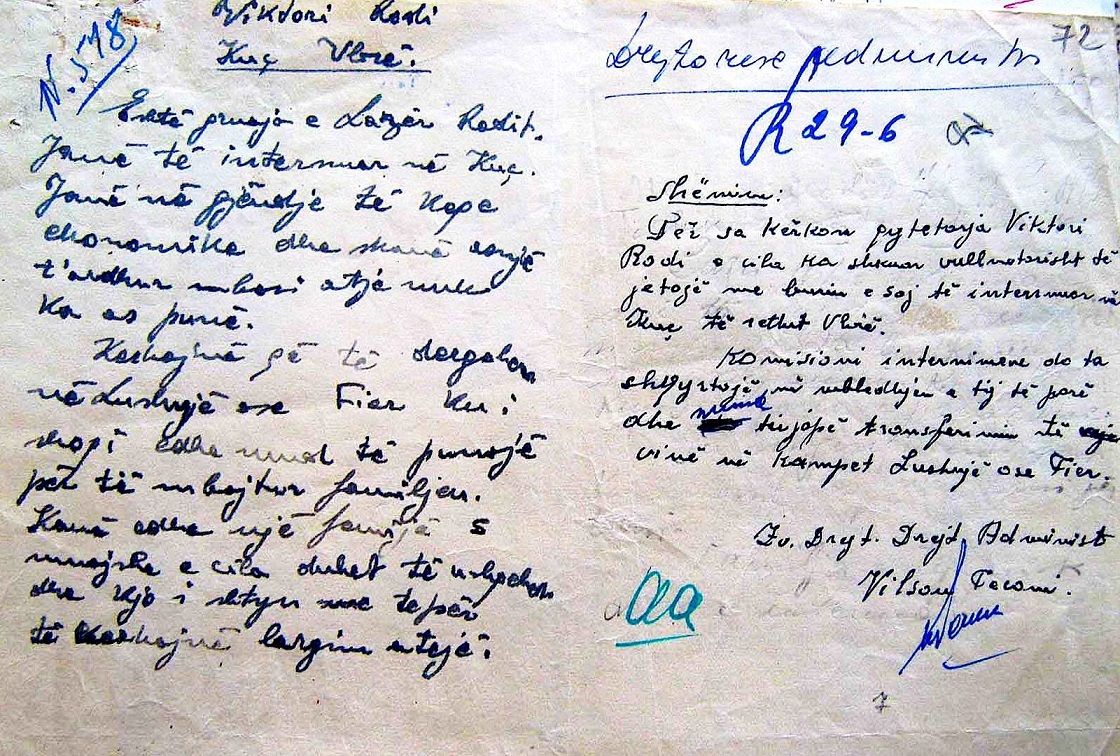 Viktori Rodi
Kuç Vlorë.
N. 578
Është gruaja e Lazër Rodit.
Janë të internuar në Kuç.
Janë në gjëndje të keqe
ekonomike dhe skanë asnjë
t'ardhur mbasi atje nuk
ka as punë.
Kërkojnë që të dërgohen
në Lushnjë ose Fier ku i
shoqi edhe mund të punojë
për të mbajtur familjen.
Kanë edhe një fëmijë 5
muajsh e cila duhet të ushqehet
dhe kjo i shtyn me tepër
të kërkojnë largim atejë.
72
R 29-6
Shënim:
Për sa kërkon qytetarja Viktori
Rodi e cila ka shkuar vullnetarisht të
jetojë me burrin e saj të internuar në
Kuç të rethit Vlorë.
Komisioni internimeve do ta
shqyrtojë në mbledhjen e tij të parë
dhe mund t'u japë transferimin të
vinë në kampet Lushnjë ose Fier.
Zv. Drejt. Drejt. Administ
Vilson
aa
7